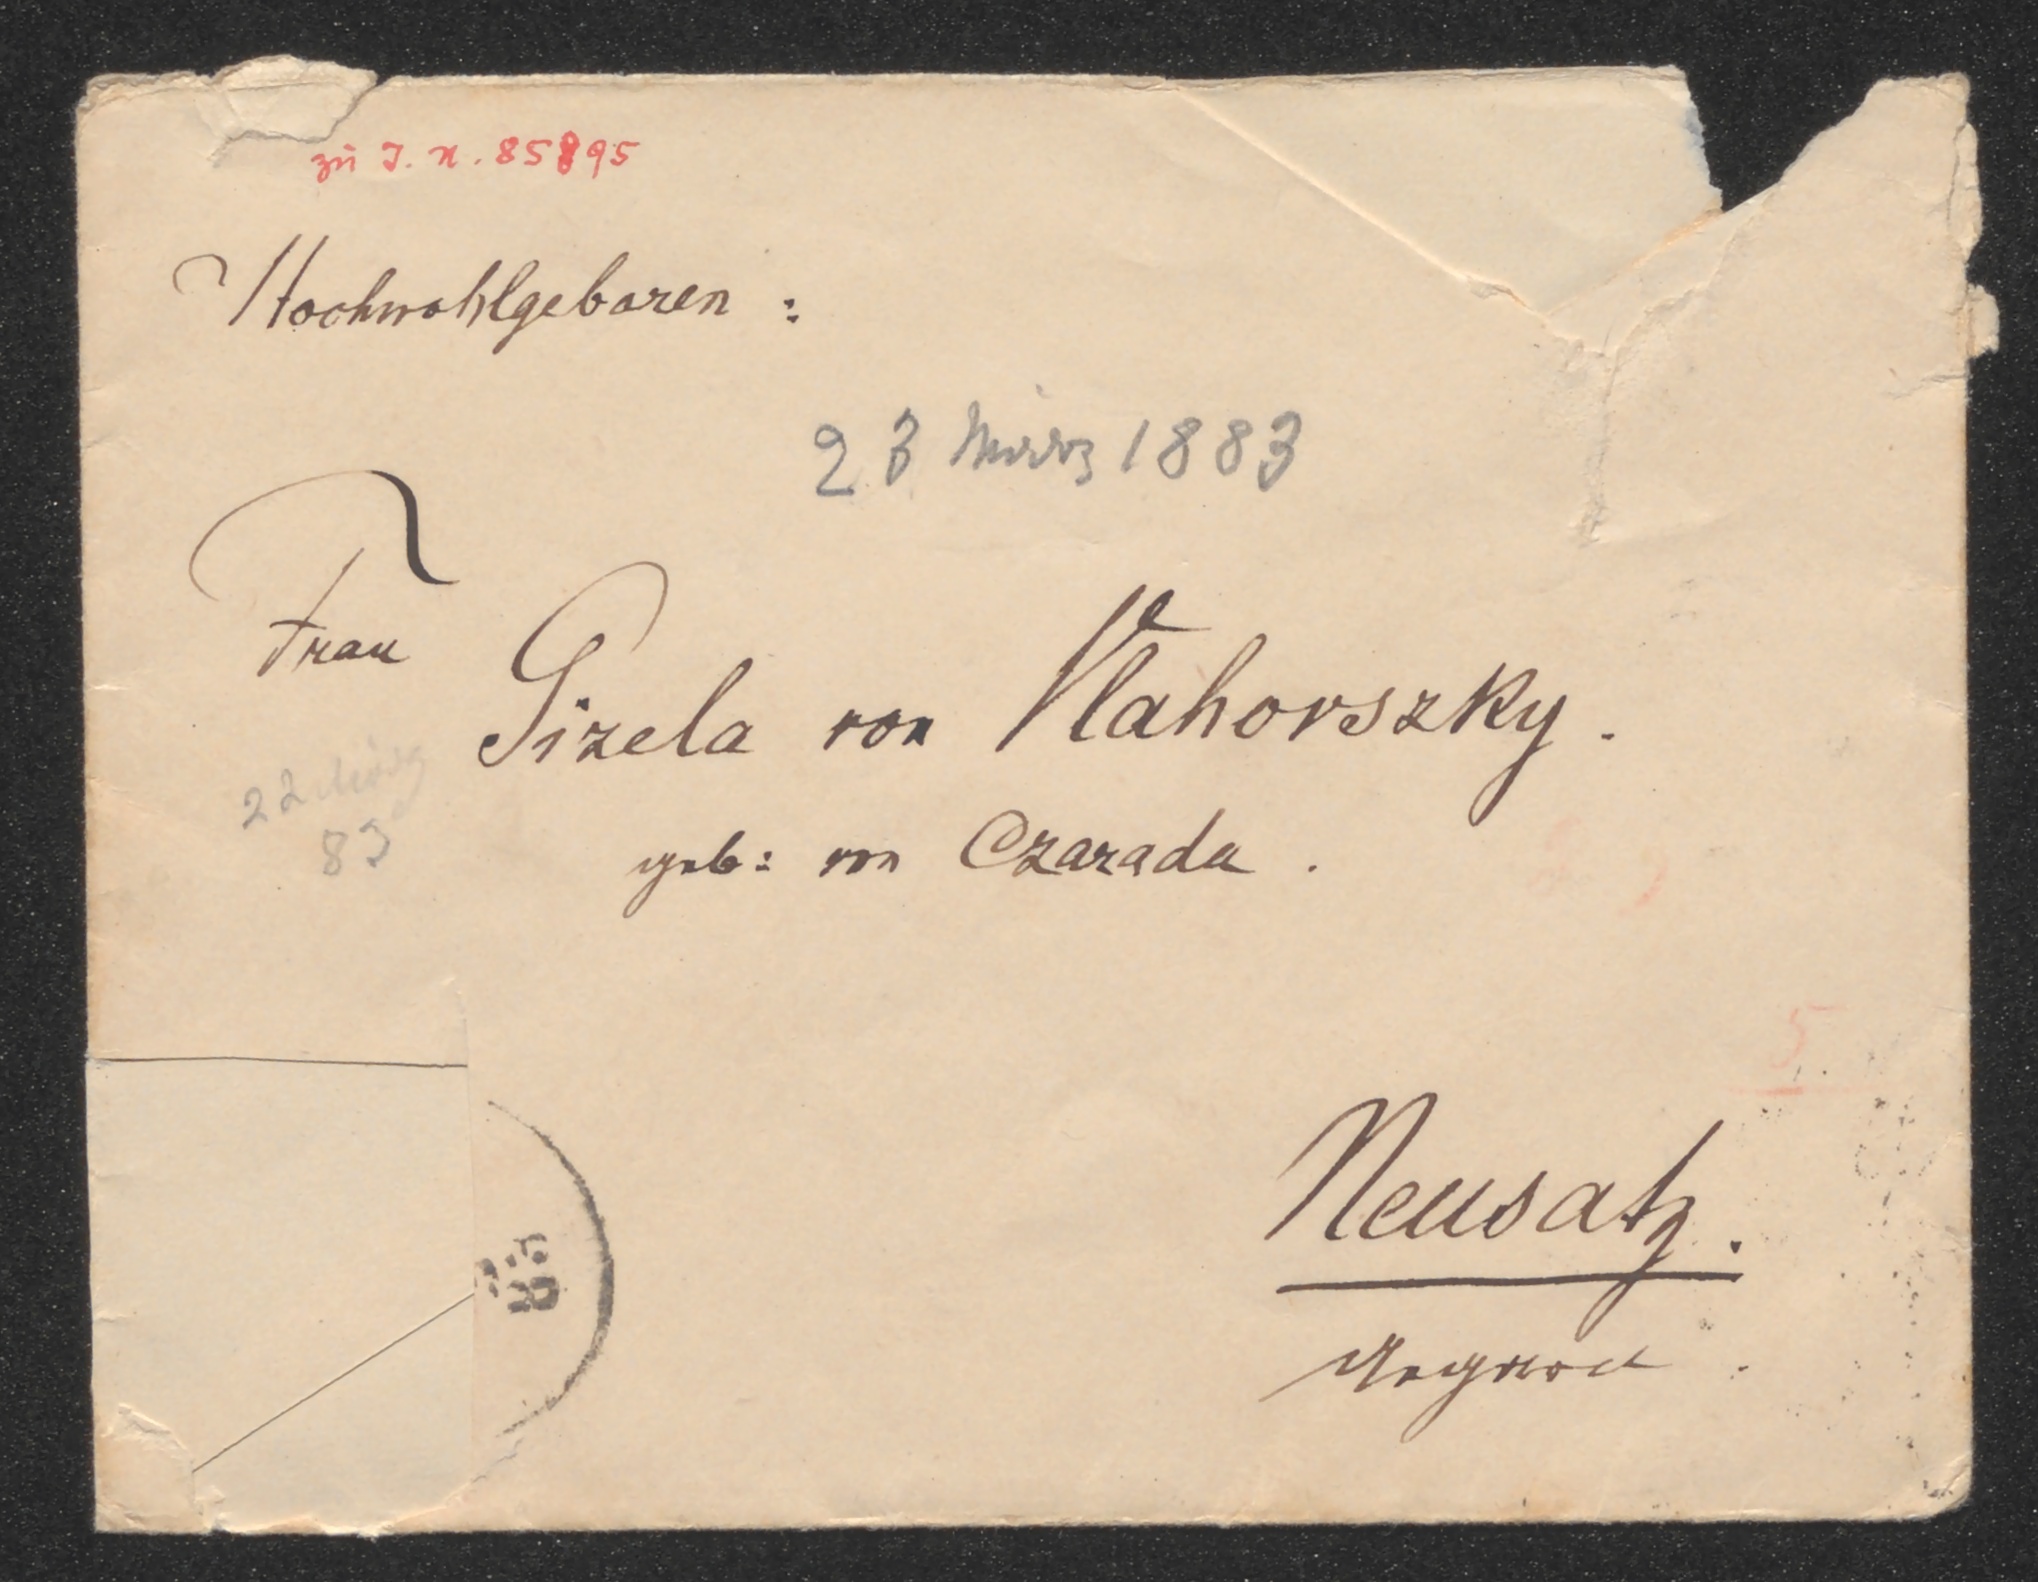 zu I. N. 85895
Hochwohlgeboren :
23 März 1883
Frau
Gizela von Vlahovszky .
22 März
83
geb: von Czarada .
5
Neusatz .
Ungarn .
83